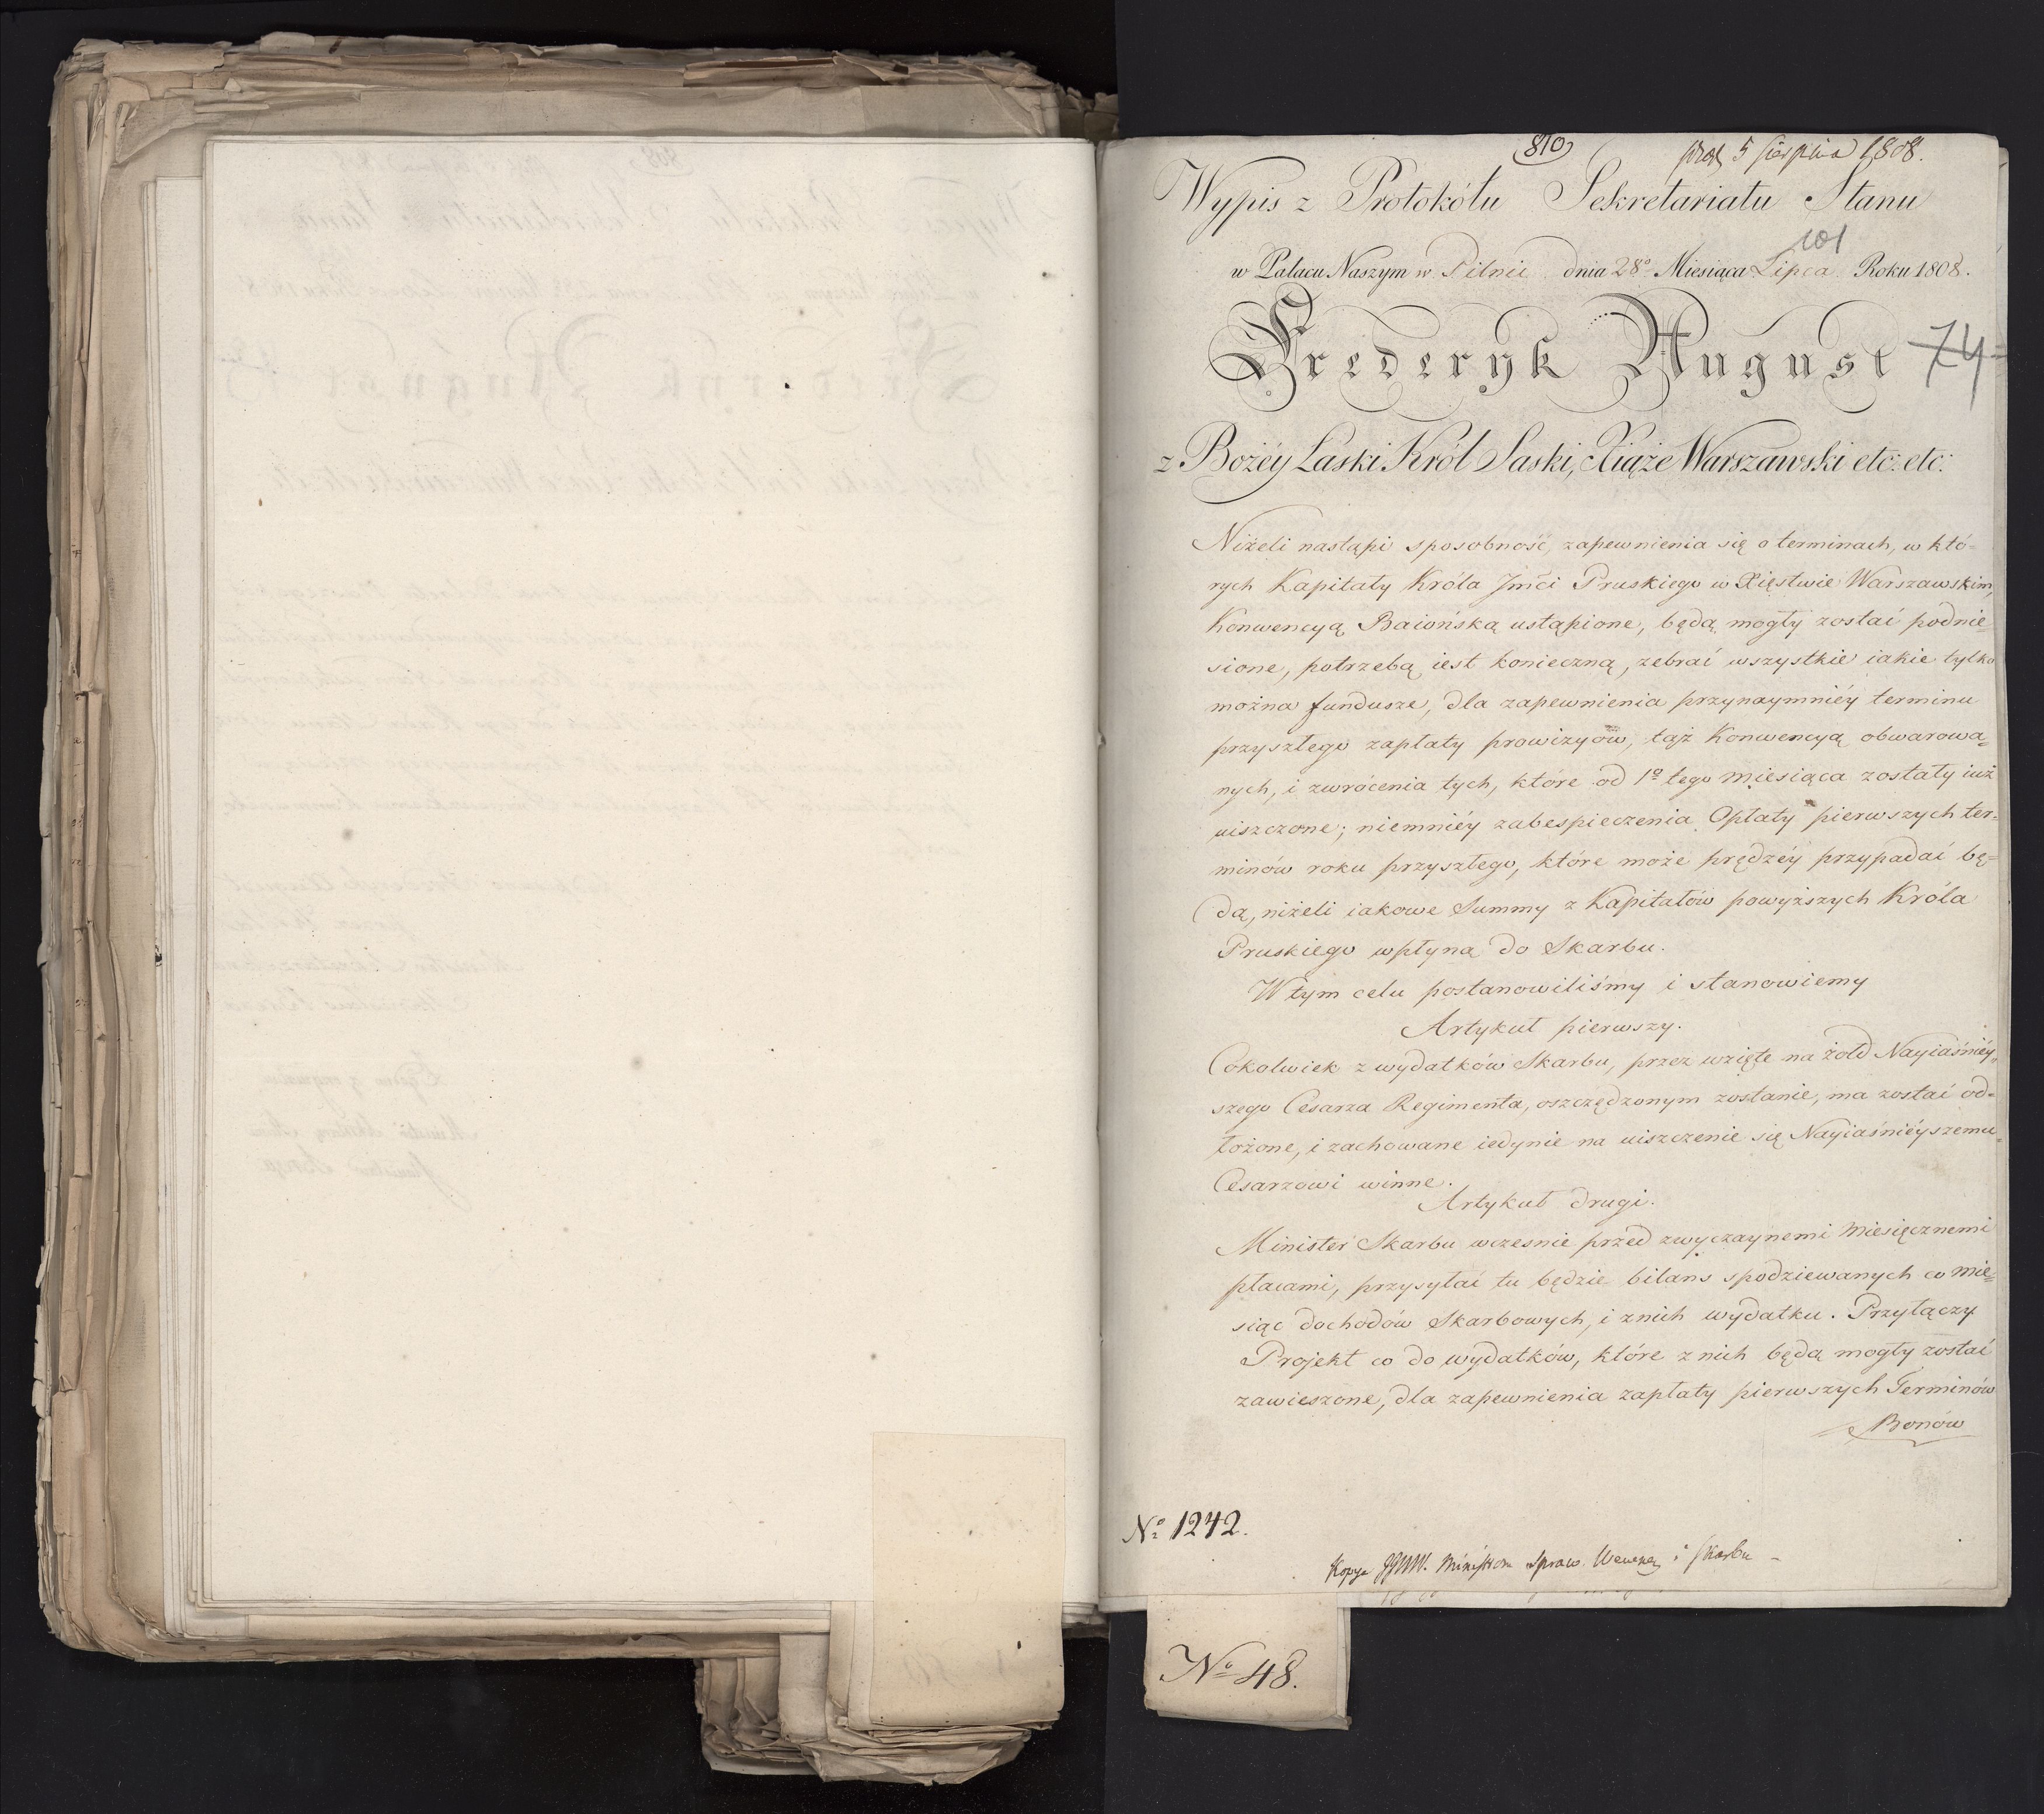 810
prod. 5 Sierpnia 1808.
Wypis z Protokółu Sekretariatu Stanu
101
w Pałacu Naszym w Pilnic dnia 28º Miesiąca Lipca Roku 1808.
Frederyk August
74
z Bożéy Łaski Król Saski, Xiąże Warszawski etc: etc:
Niżeli nastąpi sposobność, zapewnienia się o terminach, w któ=
rych Kapitały Króla Jmći Pruskiego w Xięstwie Warszawskim,
Konwencyą Baiońską ustąpione, będą mogły zostać podnie=
sione, potrzebą iest konieczną, zebrać wszystkie iakie tylko
można fundusze, dla zapewnienia przynaymniéy terminu
przyszłego zapłaty prowizyów, tąż Konwencyą obwarowa=
nych, i zwrócenia tych, które od 1º tego miesiąca zostały iuż
uiszczone; niemniéy zabespieczenia Opłaty pierwszych ter=
minów roku przyszłego, które może prędzéy przypadać bę=
dą, niżeli iakowe Summy z Kapitałów powyższych Króla
Pruskiego wpłyną do Skarbu.
W tym celu postanowiliśmy i stanowiemy
Artykuł pierwszy.
Cokolwiek z wydatków Skarbu, przez wzięte na żołd Nayiaśniéy=
szego Cesarza Regimenta, oszczędzonym zostanie, ma zostać od=
łożone, i zachowane iedynie na uiszczenie się Nayiaśniéyszemu
Cesarzowi winne.
Artykuł drugi.
Minister Skarbu wczesnie przed zwyczaynemi miesięcznemi
płacami, przysyłać tu będzie bilans spodziewanych co mie=
siąc dochodów Skarbowych, i z nich wydatku. Przyłączy
Projekt co do wydatków, które z nich będą mogły zostać
zawieszone, dla zapewnienia zapłaty pierwszych Terminów
Bonów
Nº 1242.
Kopya JJWW. Ministrom Spraw. Wewnę i Skarbu
Nº 48.